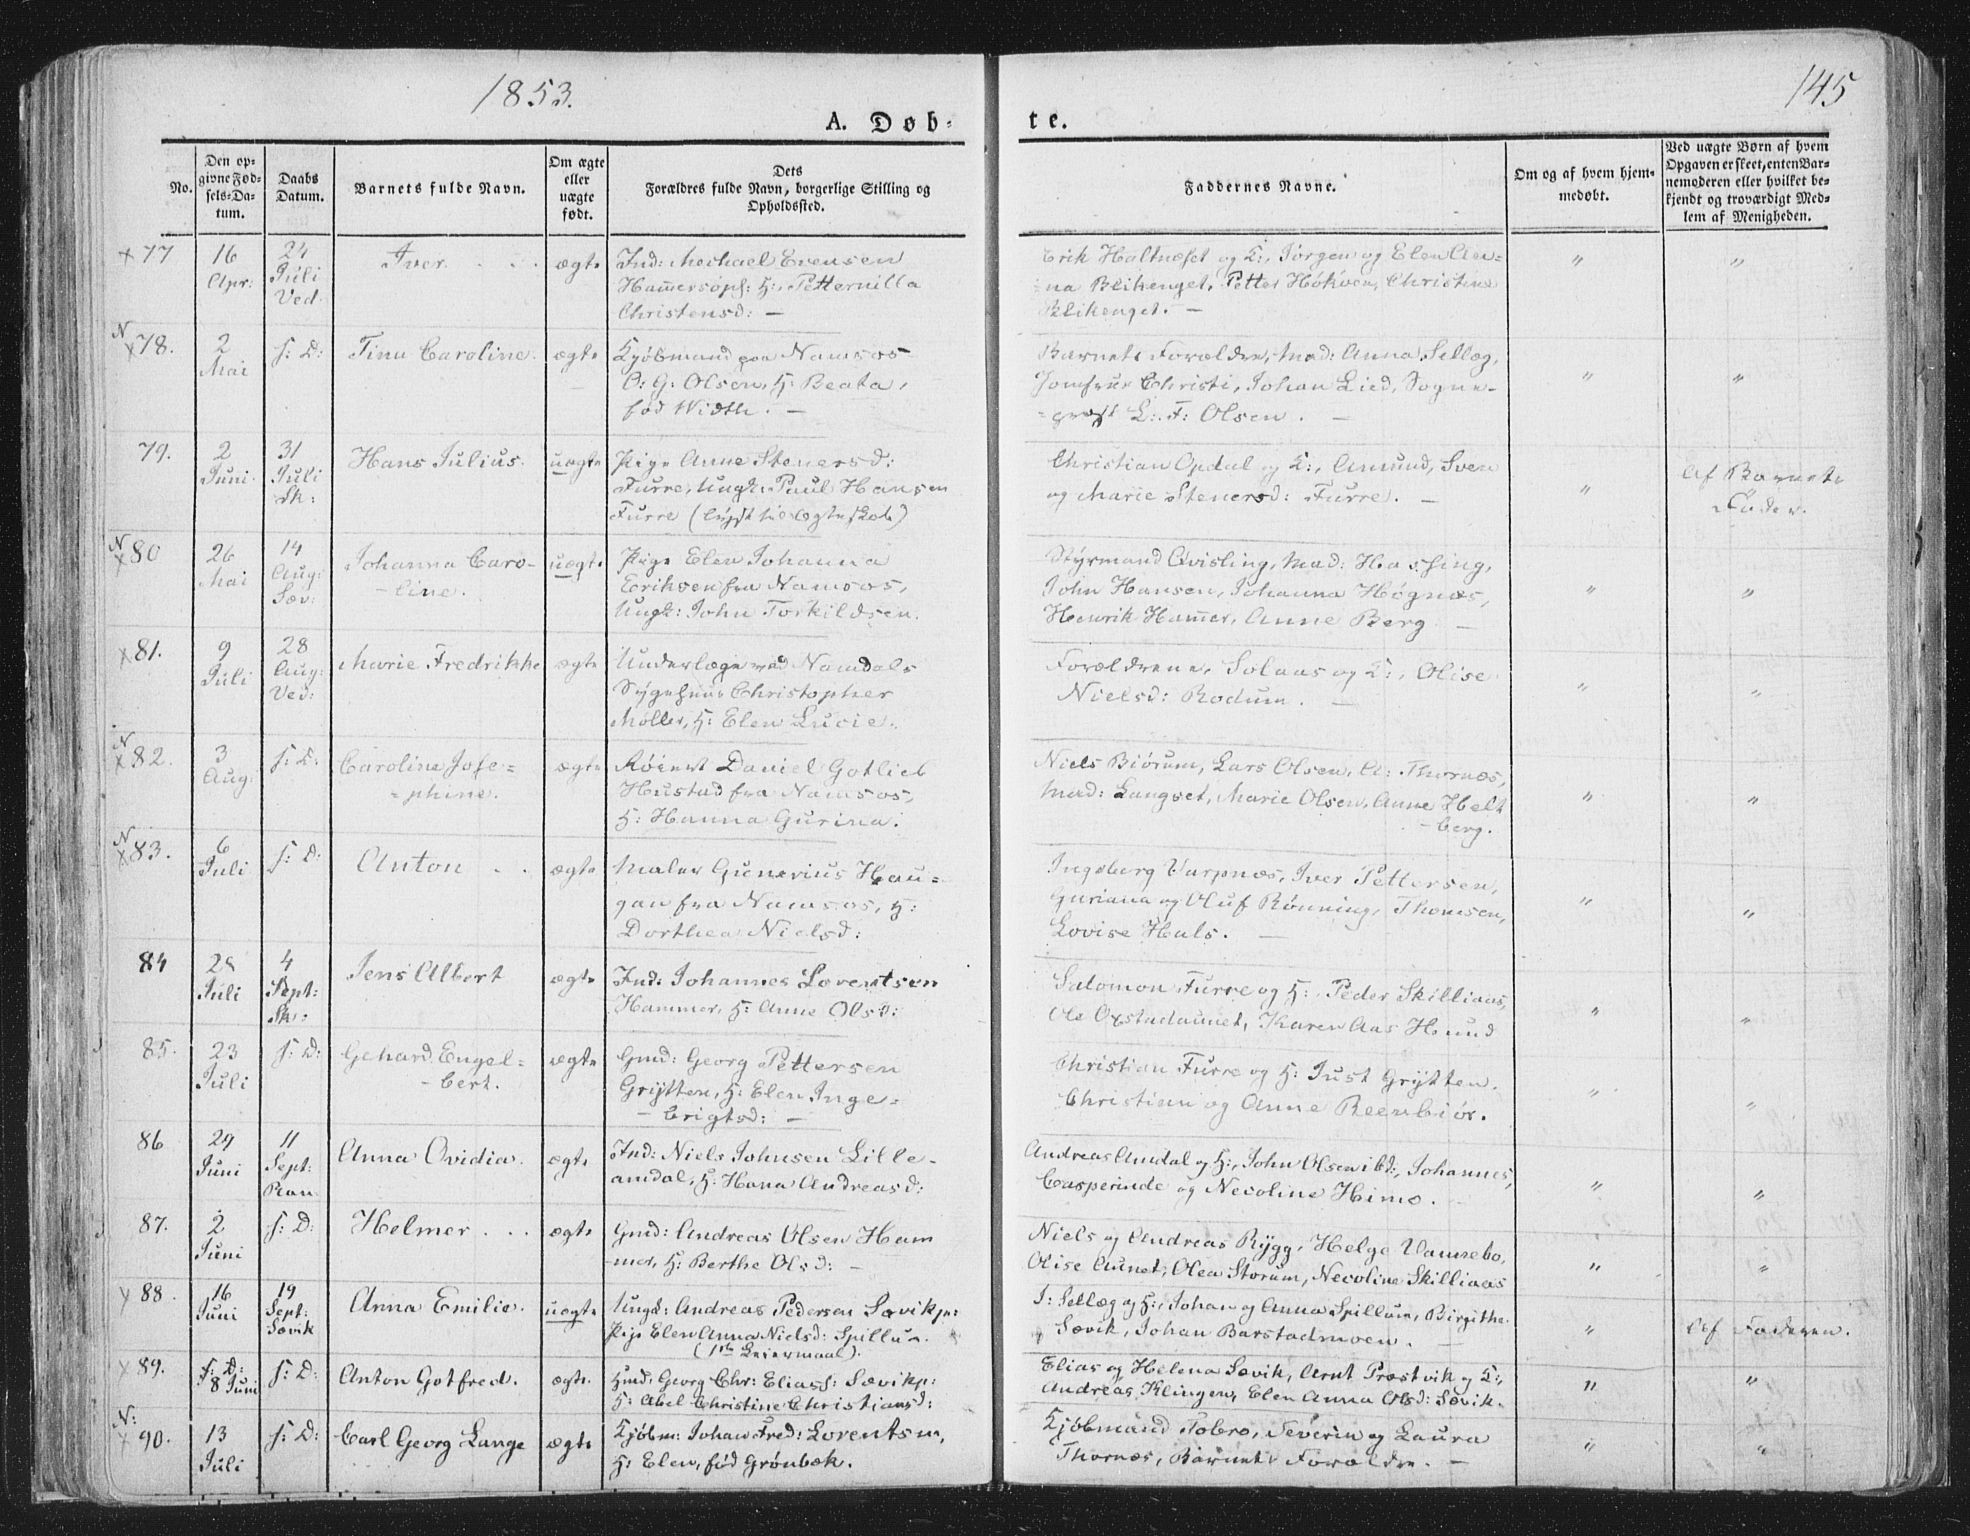 1853.
145
A. Døb-
te.
No.
Den op-
givne Fød-
sels-Da-
tum.
Daabs
Datum.
Barnets fulde Navn.
Om ægte
eller
uægte
født.
Dets
Forældres fulde Navn, borgerlige Stilling og
Opholdssted.
Faddernes Navne.
Om og af hvem hjem-
medøbt.
Ved uægte Børn af hvem
Opgaven er skeet, enten Bar-
nemoderen eller hvilket be-
kjendt og troværdigt Med-
lem af Menigheden.
x 77 16 Apr: 24 Juli Ved. Iver. ægte
Ind: Mechael Evensen
Hammersøph: H:, Petternilla
Christensd: —
Erik Haltnæset og K:, Jørgen og Elen An-
na Blikenget, Petter Høknæs, Christine
Blikenget. — " "
N x 78. 2 Mai s: D: Tina Caroline. ægte
Kjøbmand paa Namsos
O: G: Olsen, H: Beata,
fød Width. —
Barnets Forældre, Mad: Anna Sellæg,
Jomfrue Christi, Johan Lied, Sogne-
-præst L: F: Olsen. — " "
79. 2 Juni 31 Juli Sk: Hans Julius. uægte
Pige Anne Stenersd:
Furre, Ungk: Paul Hansen
Furre (lyst til Ægteskab)
Christian Opdal og K:, Amund, Sven
og Marie Stenersd: Furre. — "
Af Barnets
Fader.
N x 80 26 Mai 14 Aug: Sæv: Johanna Caro-
-line. uægte
Pige Elen Johanna
Eriksen fra Namsos,
Ungk: John Torkildsen.
Styrmand Qvisling, Mad: Hassing,
John Hansen, Johanna Høgnæs,
Henrik Hammer, Anne Berg — " "
x 81. 9 Juli 28 Aug: Ved: Marie Fredrikke ægte
Underlæge ved Namdals
Sygehuus Christopher
Møller, H: Elen Lucie.
Forældrene, Solaas og K:, Olise
Nielsd: Rodum. — " "
N x 82. 3 Aug: s: D: Caroline Jose-
-phine. ægte
Røiert Daniel Gotlieb
Hustad fra Namsos,
H: Hanna Gurina.
Niels Biørum, Lars Olsen, A: Thornæs,
Mad: Langset, Marie Olsen, Anne Helt
-berg. " "
N x 83. 6 Juli s: D: Anton . . ægte
Maler Gunerius Hau-
gan fra Namsos, H:
Dorthea Nielsd:
Ingeborg Varpnæs, Iver Pettersen,
Guriana og Oluf Rønning, Thomsen,
Lovise Hals. — " "
84 28 Juli 4 Sept: Sk: Jens Albert ægte
Ind: Johannes Lorentsen
Hammer, H: Anne Olsd:
Salomon Furre og H:, Peder Skilliaas,
Ole Opstadaunet, Karen Aas Hund " "
85. 23 Juli s: D: Gehard Engel-
-bert. ægte
Gmd: Georg Pettersen
Grytten, H: Elen Inge-
-brigtsd: —
Christian Furre og H: Just Grytten.
Christian og Anne Reenbiør. " "
86 29 Juni 11 Sept: Ran Anna Ovidia. ægte
Ind: Niels Johnsen Lille-
amdal, H: Hana Andreasd:
Andreas Amdal og H:, John Olsen ibd:, Johannes,
Casperinde og Necoline Himo. — " "
87. 2 Juni s: D: Helmer . . . ægte
Gmd: Andreas Olsen Ham
-mer, H: Berthe Olsd: —
Niels og Andreas Rygg, Helge Vannebo,
Olise Aunet, Olea Storum, Necoline Skilliaas " "
y 88. 16 Juni 19 Sept: Sævik Anna Emilie. uægte
Ungk: Andreas Pedersen Sævikp:
Pige Elen Anna Nielsd: Spillum.
(1ste Leiermaal).
I: Sellæg og H:, Johan og Anna Spillum, Birgithe
Sævik, Johan Barstadmoen. — " Af Faderen.
y 89. s: D: 8 Juni s: D: Anton Gotfred. ægte
Hmd: Georg Chr: Eliass: Sævikp:
H: Abel Christine Christiansd:
Elias og Helena Sævik, Arnt Præstvik og K:,
Andreas Klingen, Elen Anna Olsd: Sævik. " "
N: x 90. 13 Juli s: D: Carl Georg Lange ægte
Kjøbm: Johan Fred: Lorentsen,
H: Elen, fød Grønbæk.
Kjøbmand Fobro, Severin og Laura
Thornæs, Barnets Forældre. — " "